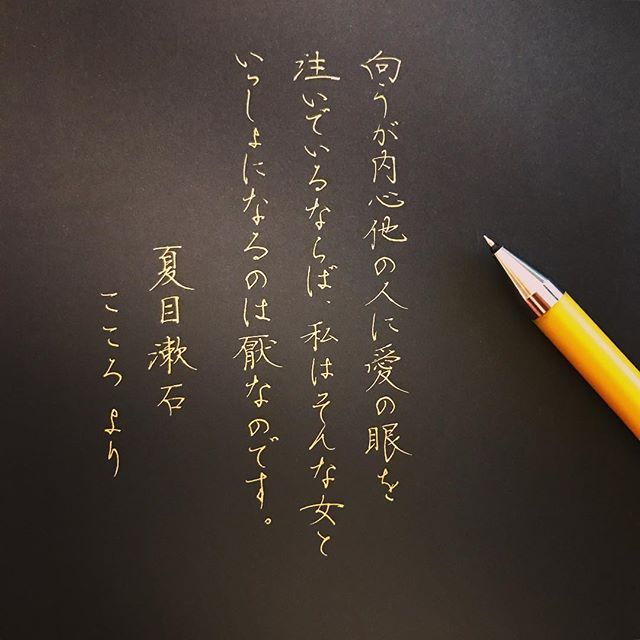 向うが内心他の人に愛の眼を
注いでいるならば、私はそんな女と
いっしょになるのは厭なのです。
夏目漱石
こころ より